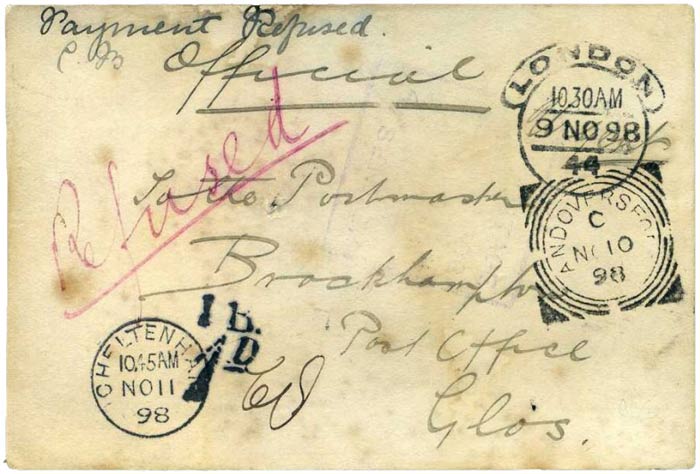 Payment Refused.
C B
Official
Refused
To the Postmaster
Brockhampton
Post Office
Glos.
LONDON
10.30AM
9 NO 98
44
ANDOVERSFO
C
NO 10
98
CHELTENHAM
10.45AM
NO 11
98
1 D.